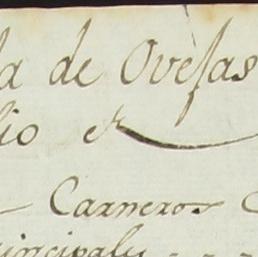 la de Ovejas
lio et
Carneros C
rincipales - - -